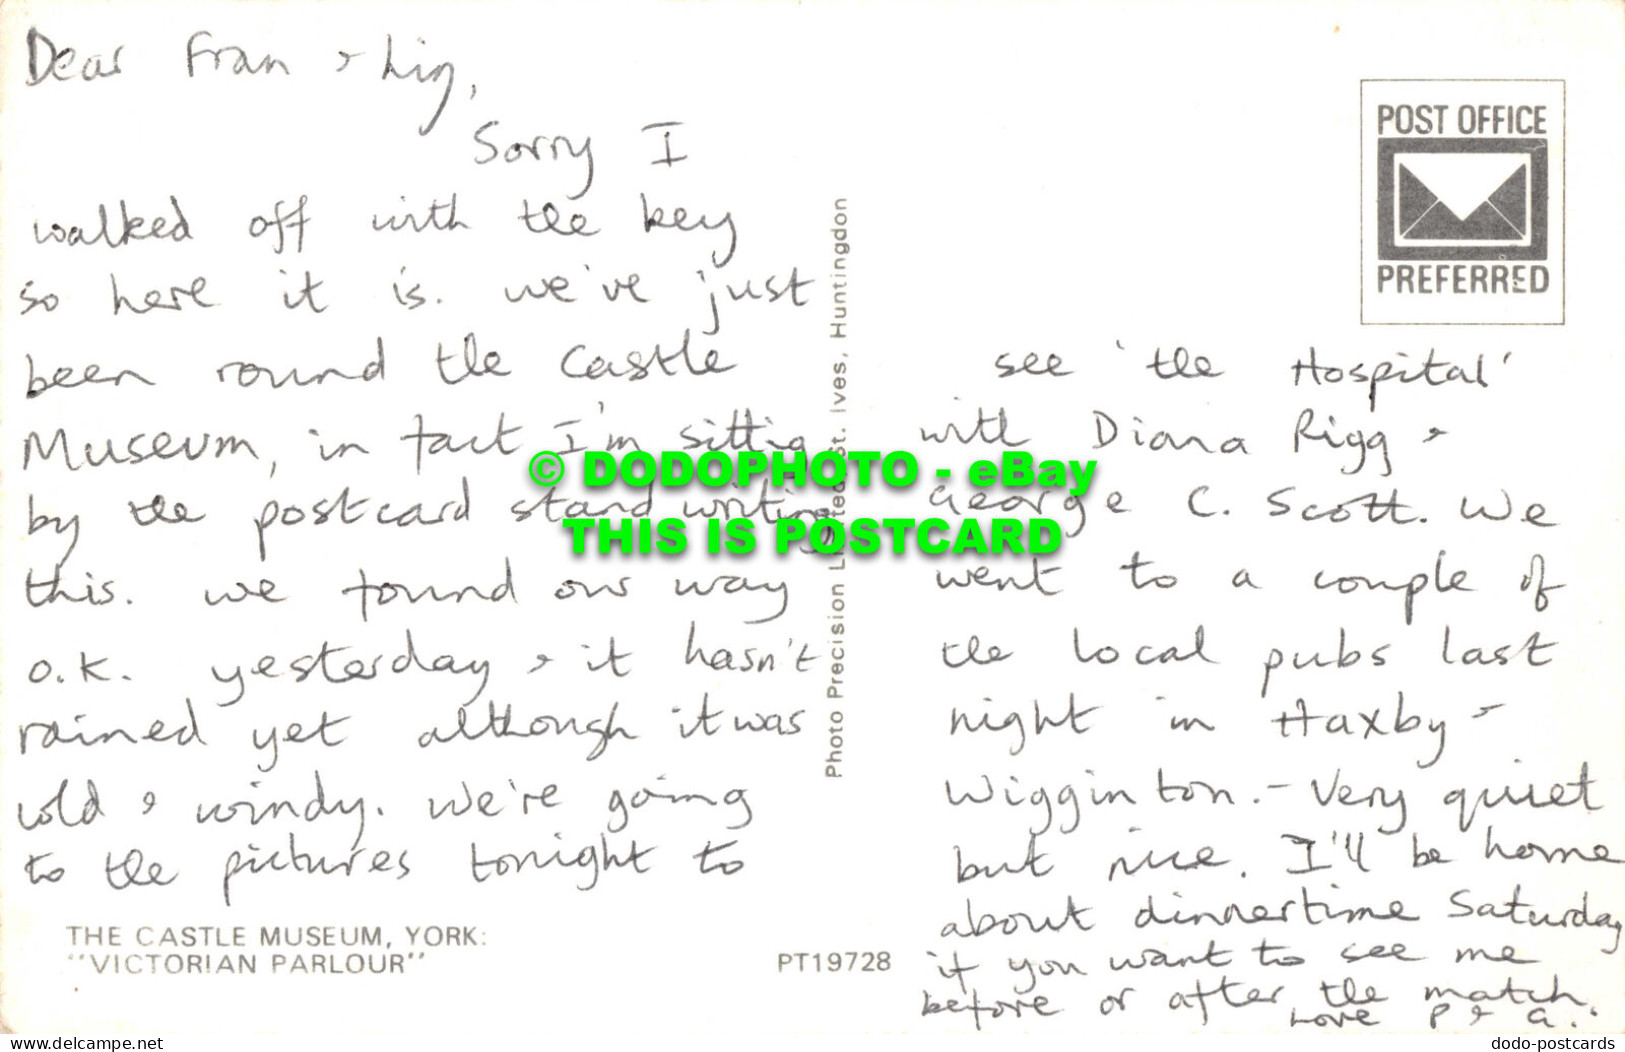 Dear Fran & Lin,
Sorry I
walked off with the key
so here it is. we've just
been round the Castle
Museum, in fact I'm sittig
by the postcard stand writing
this. we found our way
o.k. yesterday & it hasn't
rained yet although it was
cold & windy. We're going
to the pictures tonight to
THE CASTLE MUSEUM, YORK:
"VICTORIAN PARLOUR"
PT19728
Photo Precision Limited, St. Ives, Huntingdon
POST OFFICE
PREFERRED
see 'the Hospital'
with Diana Rigg &
George C. Scott. We
went to a couple of
the local pubs last
night in Haxby &
Wigginton. - Very quiet
but nice. I'll be home
about dinnertime Saturday
if you want to see me
before or after the match.
Love P & A.
© DODOPHOTO - eBay
THIS IS POSTCARD
www.delcampe.net
dodo-postcards